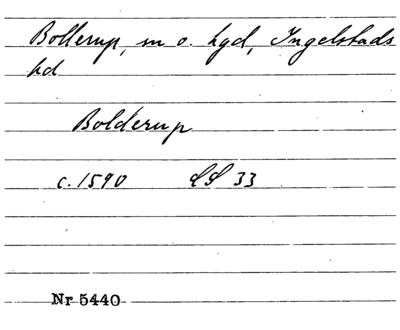 Bollerup, m o. hgd, Ingelstads
hd
Bolderup
c. 1590 LS 33
Nr 5440